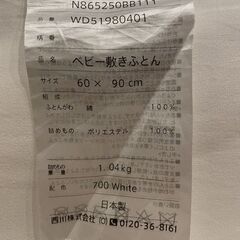 N865250BB111
WD51980401
柄番
品名 ベビー敷きふとん
サイズ 60 × 90 cm
ふとんがわ 綿
詰めもの ポリエステル 100%
詰めもの重量 1.04kg
配色 700 White
日本製
西川株式会社 (C) 0120-36-8161